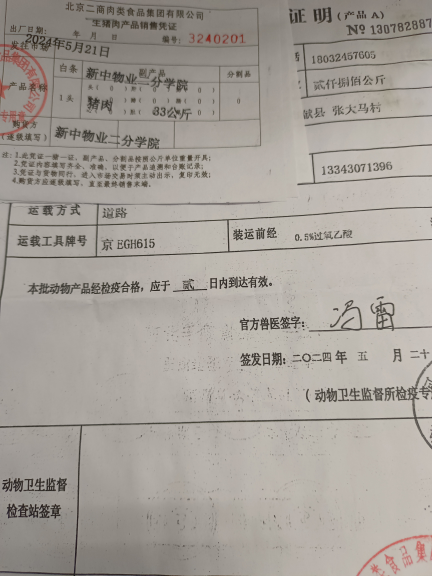 北京二商肉类食品集团有限公司
生猪肉产品销售凭证
出厂日期： 年 月 日 编号：3240201
2024年5月21日
发往市场
新中物业一分学院
白条 副产品 分割品
产品名称
1头 猪肉 33公斤 0
购货方
（逐级填写）
新中物业二分学院
注：1.此凭证一猪一证，副产品、分割品按照公斤单位重量开具；
2.凭证内容填写齐全、准确，以便于产品追溯和台账记录；
3.凭证与货物同行，进入市场交易时须主动出示，复印无效；
4.购货方应逐级填写，直至最终销售末端。
证明（产品A）
№ 130782887
18032457605
贰仟捌佰公斤
献县 张大马村
13343071396
运载方式 道路
运载工具牌号 京EGH615 装运前经 0.5%过氧乙酸
本批动物产品经检疫合格，应于 贰 日内到达有效。
官方兽医签字：冯雷
签发日期：二〇二四 年 五 月 二十
（动物卫生监督所检疫专
动物卫生监督
检查站签章
类食品集